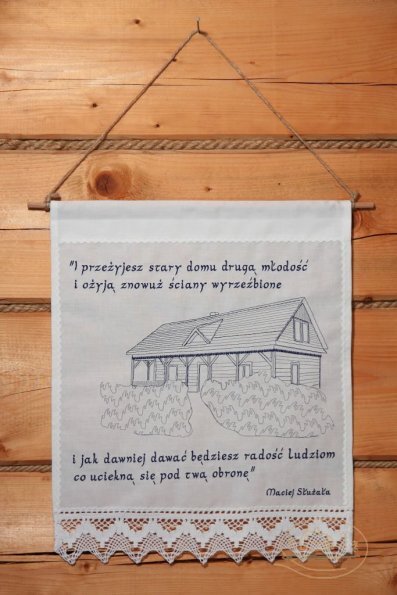 "I przeżyjesz stary domu drugą młodość
i ożyją znowuż ściany wyrzeźbione
i jak dawniej dawać będziesz radość ludziom
co uciekną się pod twą obronę"
Maciej Służała